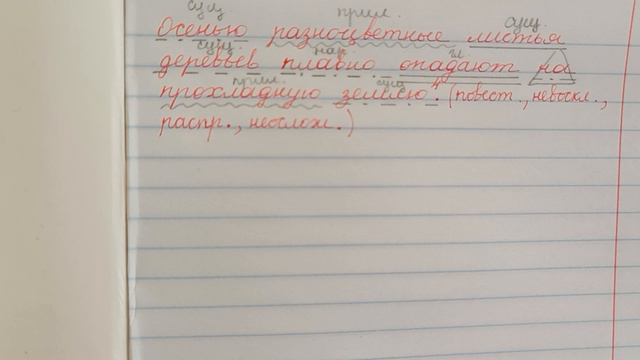 сущ прил. сущ.
Осенью разноцветные листья
сущ. нар. гл
деревьев плавно опадают на
прил. сущ
прохладную землю.⁴ (повест., невоскл.,
распр., неослож.)